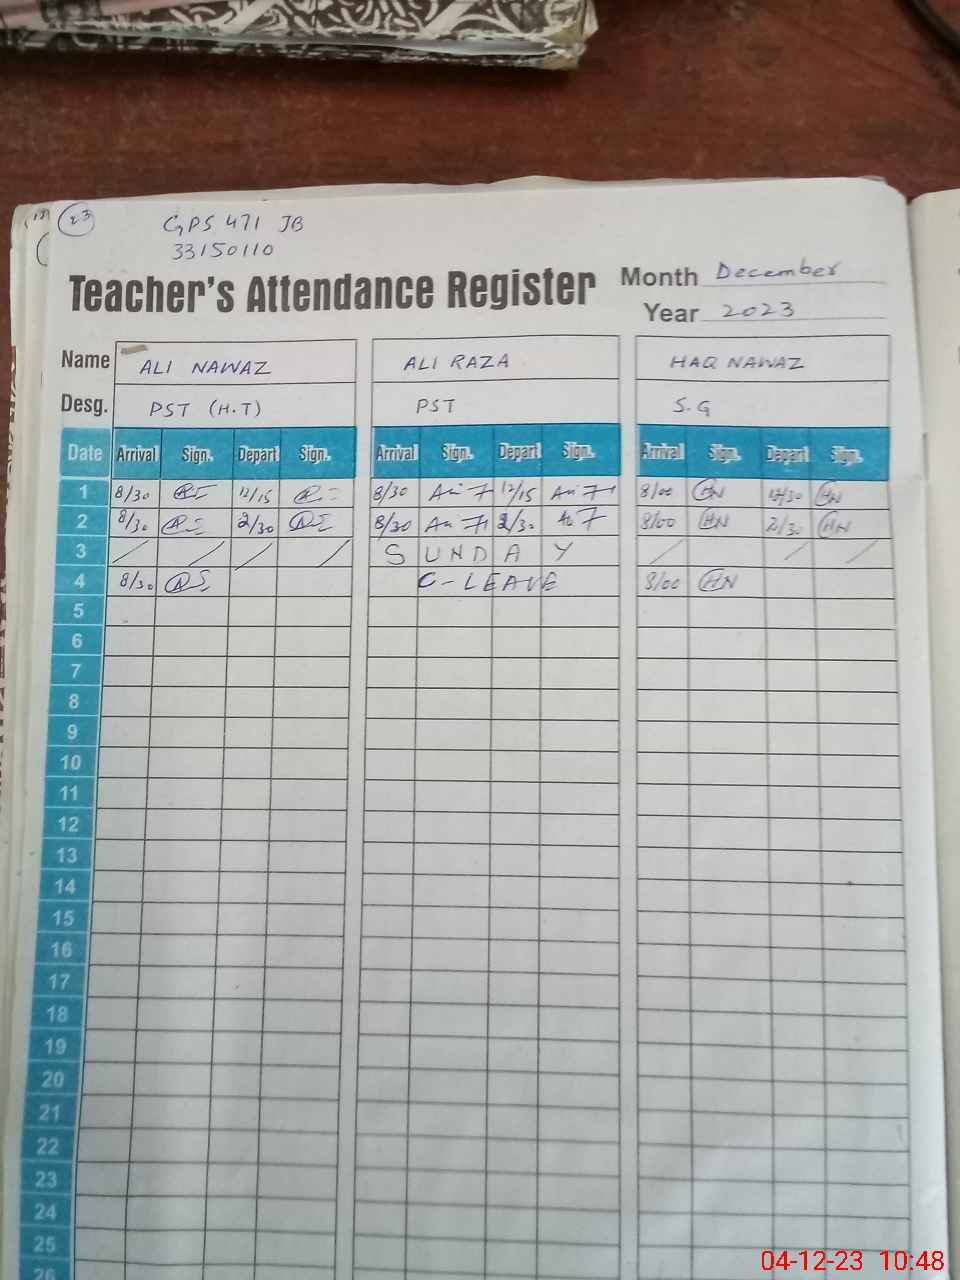 23
GPS 471 JB
33150110
Teacher's Attendance Register Month December
Year 2023
Name ALI NAWAZ ALI RAZA HAQ NAWAZ
Desg. PST (H.T) PST S.G
Date Arrival Sign. Depart Sign. Arrival Sign. Depart Sign. Arrival Sign. Depart Sign.
1 8/30 12/15 8/30 12/15 8/00 HN 12/30 HN
2 8/30 2/30 8/30 2/30 8/00 HN 2/30 HN
3 / / / / SUNDAY / / /
4 8/30 C-LEAVE 8/00 HN
5
6
7
8
9
10
11
12
13
14
15
16
17
18
19
20
21
22
23
24
25
26
04-12-23 10:48